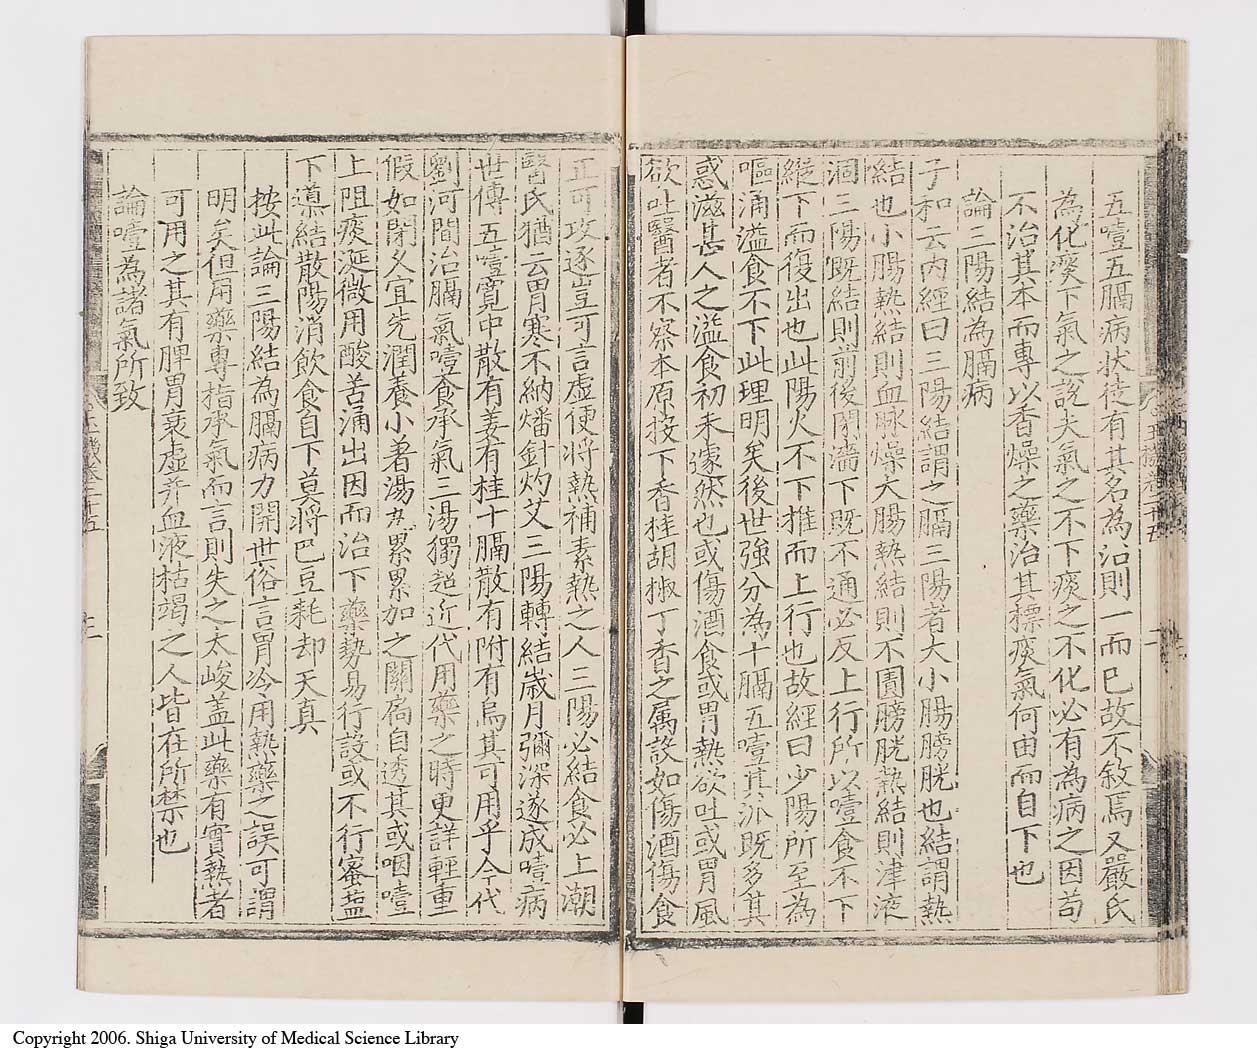 五噎五膈病狀徒有其名為治則一而已故不敘焉又嚴氏
為化痰下氣之說夫氣之不下痰之不化必有為病之因苟
不治其本而專以香燥之藥治其標痰氣何由而自下也
論三陽結為膈病
子和云內經曰三陽結謂之膈三陽者大小腸膀胱也結謂熱
結也小腸熱結則血脉燥大腸熱結則不圊膀胱熱結則津液
涸三陽既結則前後閉濇下既不通必反上行所以噎食不下
縱下而復出也此陽火不下推而上行也故經曰少陽所至為
嘔涌溢食不下此理明矣後世強分為十膈五噎其派既多其
惑滋甚人之溢食初未遽然也或傷酒食或胃熱欲吐或胃風
欲吐醫者不察本原投下香桂胡椒丁香之属設如傷酒傷食
正可攻逐豈可言虛便將熱補素熱之人三陽必結食必上潮
醫氏猶云胃寒不納燔針灼艾三陽轉結歲月彌深遂成噎病
世傳五噎寬中散有姜有桂十膈散有附有烏其可用乎今代
劉河間治膈氣噎食承氣三湯獨超近代用藥之時更詳輕重
假如閉久宜先潤養小著湯丸累累加之關扃自透其或咽噎
上阻痰涎微用酸苦涌出因而治下藥勢易行設或不行蜜盐
下導結散陽消飲食自下莫將巴豆耗却天真
按此論三陽結為膈病力開世俗言胃冷用熱藥之誤可謂
明矣但用藥專指承氣而言則失之太峻盖此藥有實熱者
可用之其有脾胃衰虛并血液枯竭之人皆在所禁也
論噎為諸氣所致
Copyright 2006. Shiga University of Medical Science Library